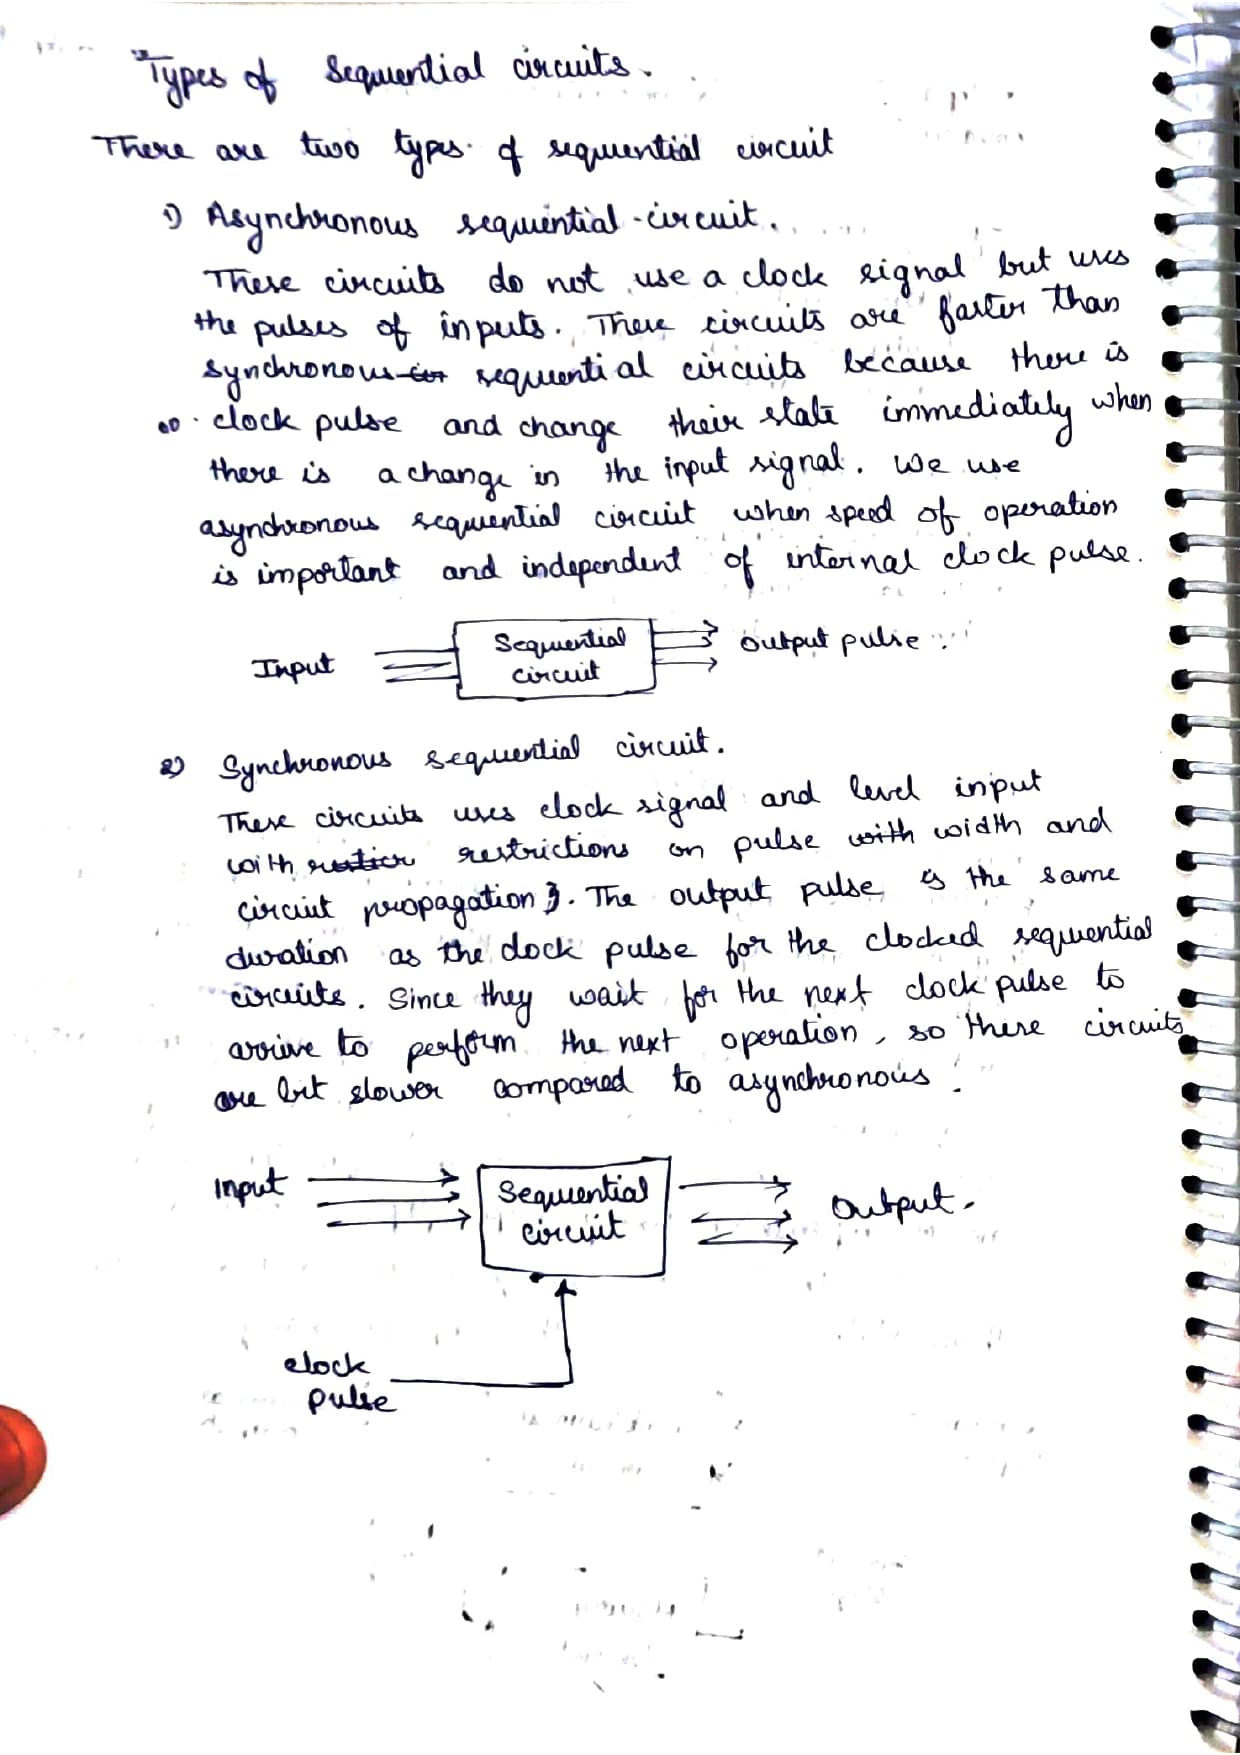 Types of Sequential circuits.
There are two types of sequential circuit
1) Asynchronous sequential circuit.
These circuits do not use a clock signal but uses
the pulses of inputs. These circuits are faster than
synchronous cir sequential circuits because there is
no clock pulse and change their state immediately when
there is a change in the input signal. We use
asynchronous sequential circuit when speed of operation
is important and independent of internal clock pulse.
Input
Sequential
circuit
Output pulse
2) Synchronous sequential circuit.
These circuits uses clock signal and level input
with restrictions on pulse with width and
circuit propagation. The output pulse is the same
duration as the clock pulse for the clocked sequential
circuits. Since they wait for the next clock pulse to
arrive to perform the next operation, so these circuits
are bit slower compared to asynchronous.
Input
Sequential
circuit
Output.
clock
pulse